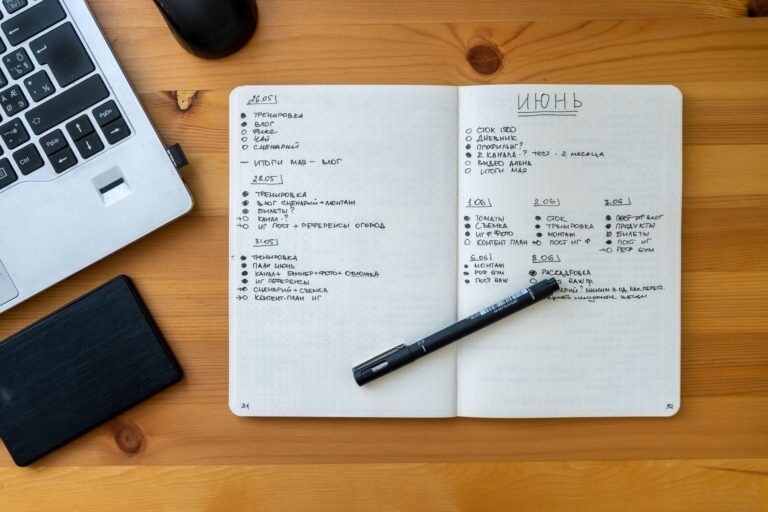 26.05
ТРЕНИРОВКА
ВЛОГ
ФИКС
ЧАЙ
СЦЕНАРИЙ
— ИТОГИ МАЯ — ВЛОГ
28.05
ТРЕНИРОВКА
ВЛОГ СЦЕНАРИЙ + МОНТАЖ
БИЛЕТЫ?
КАНАЛ -?
ИГ ПОСТ + РЕФЕРЕНСЫ ОГОРОД
31.05
ТРЕНИРОВКА
ПЛАН ИЮНЬ
КАНАЛ + БАННЕР + ФОТО + ОБЛОЖКА
ИГ РЕФЕРЕНСЫ
СЦЕНАРИЙ + СЪЕМКА
КОНТЕНТ-ПЛАН ИГ
31
ИЮНЬ
СТОК 1500
ДНЕВНИК
2 КАНАЛА -? ТЕСТ - 2 МЕСЯЦА
ВИДЕО
ИТОГИ МАЯ
1.06
ТОМАТЫ
СЪЕМКА
ИГ ФОТО
КОНТЕНТ ПЛАН
2.06
СТОК
ТРЕНИРОВКА
МОНТАЖ
ПОСТ ИГ
3.06
ПОСТ ИГ ВЛОГ
ПРОДУКТЫ
БИЛЕТЫ
ПОСТ ИГ
РЕФ GYM
6.06
МОНТАЖ
РЕФ GYM
ПОСТ RAW
8.06
РАСКАДРОВКА
RAW